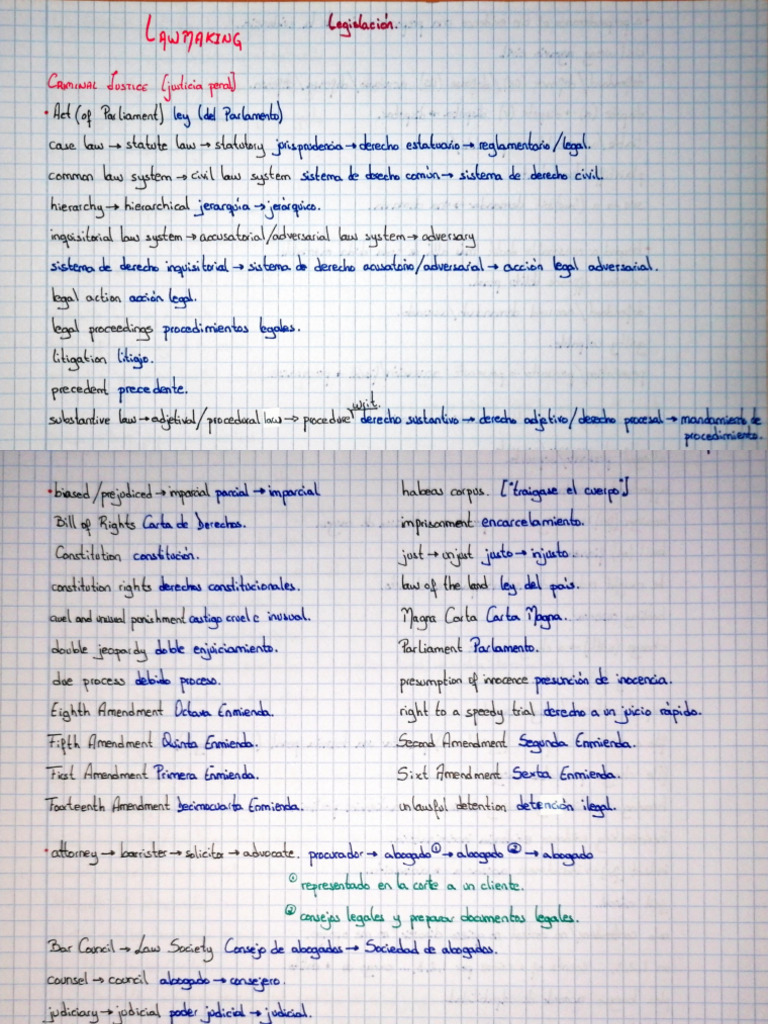 LAWMAKING
Legislación.
CRIMINAL JUSTICE [justicia penal]
• Act (of Parliament) ley (del Parlamento)
case law → statute law → statutory jurisprudencia → derecho estatuario → reglamentario/legal.
common law system → civil law system sistema de derecho común → sistema de derecho civil.
hierarchy → hierarchical jerarquía → jerárquico.
inquisitorial law system → accusatorial/adversarial law system → adversary
sistema de derecho inquisitorial → sistema de derecho acusatorio/adversarial → acción legal adversarial.
legal action acción legal.
legal proceedings procedimientos legales.
litigation litigio.
precedent precedente.
writ.
substantive law → adjetival/procedural law → procedure derecho sustantivo → derecho adjetivo/derecho procesal → mandamiento de
procedimiento.
• biased/prejudiced → imparcial parcial → imparcial
Bill of Rights Carta de Derechos.
Constitution constitución.
constitution rights derechos constitucionales.
cruel and unusual punishment castigo cruel e inusual.
double jeopardy doble enjuiciamiento.
due process debido proceso.
Eighth Amendment Octava Enmienda.
Fifth Amendment Quinta Enmienda.
First Amendment Primera Enmienda.
Fourteenth Amendment Decimocuarta Enmienda.
habeas corpus. ["traigase el cuerpo"]
imprisonment encarcelamiento.
just → unjust justo → injusto.
law of the land ley del país.
Magna Carta Carta Magna.
Parliament Parlamento.
presumption of innocence presunción de inocencia.
right to a speedy trial derecho a un juicio rápido.
Second Amendment Segunda Enmienda.
Sixt Amendment Sexta Enmienda.
unlawful detention detención ilegal.
• attorney → barrister → solicitor → advocate. procurador → abogado ① → abogado ② → abogado
① representado en la corte a un cliente.
② consejos legales y preparar documentos legales.
Bar Council → Law Society Consejo de abogados → Sociedad de abogados.
counsel → council abogado → consejero.
judiciary → judicial poder judicial → judicial.